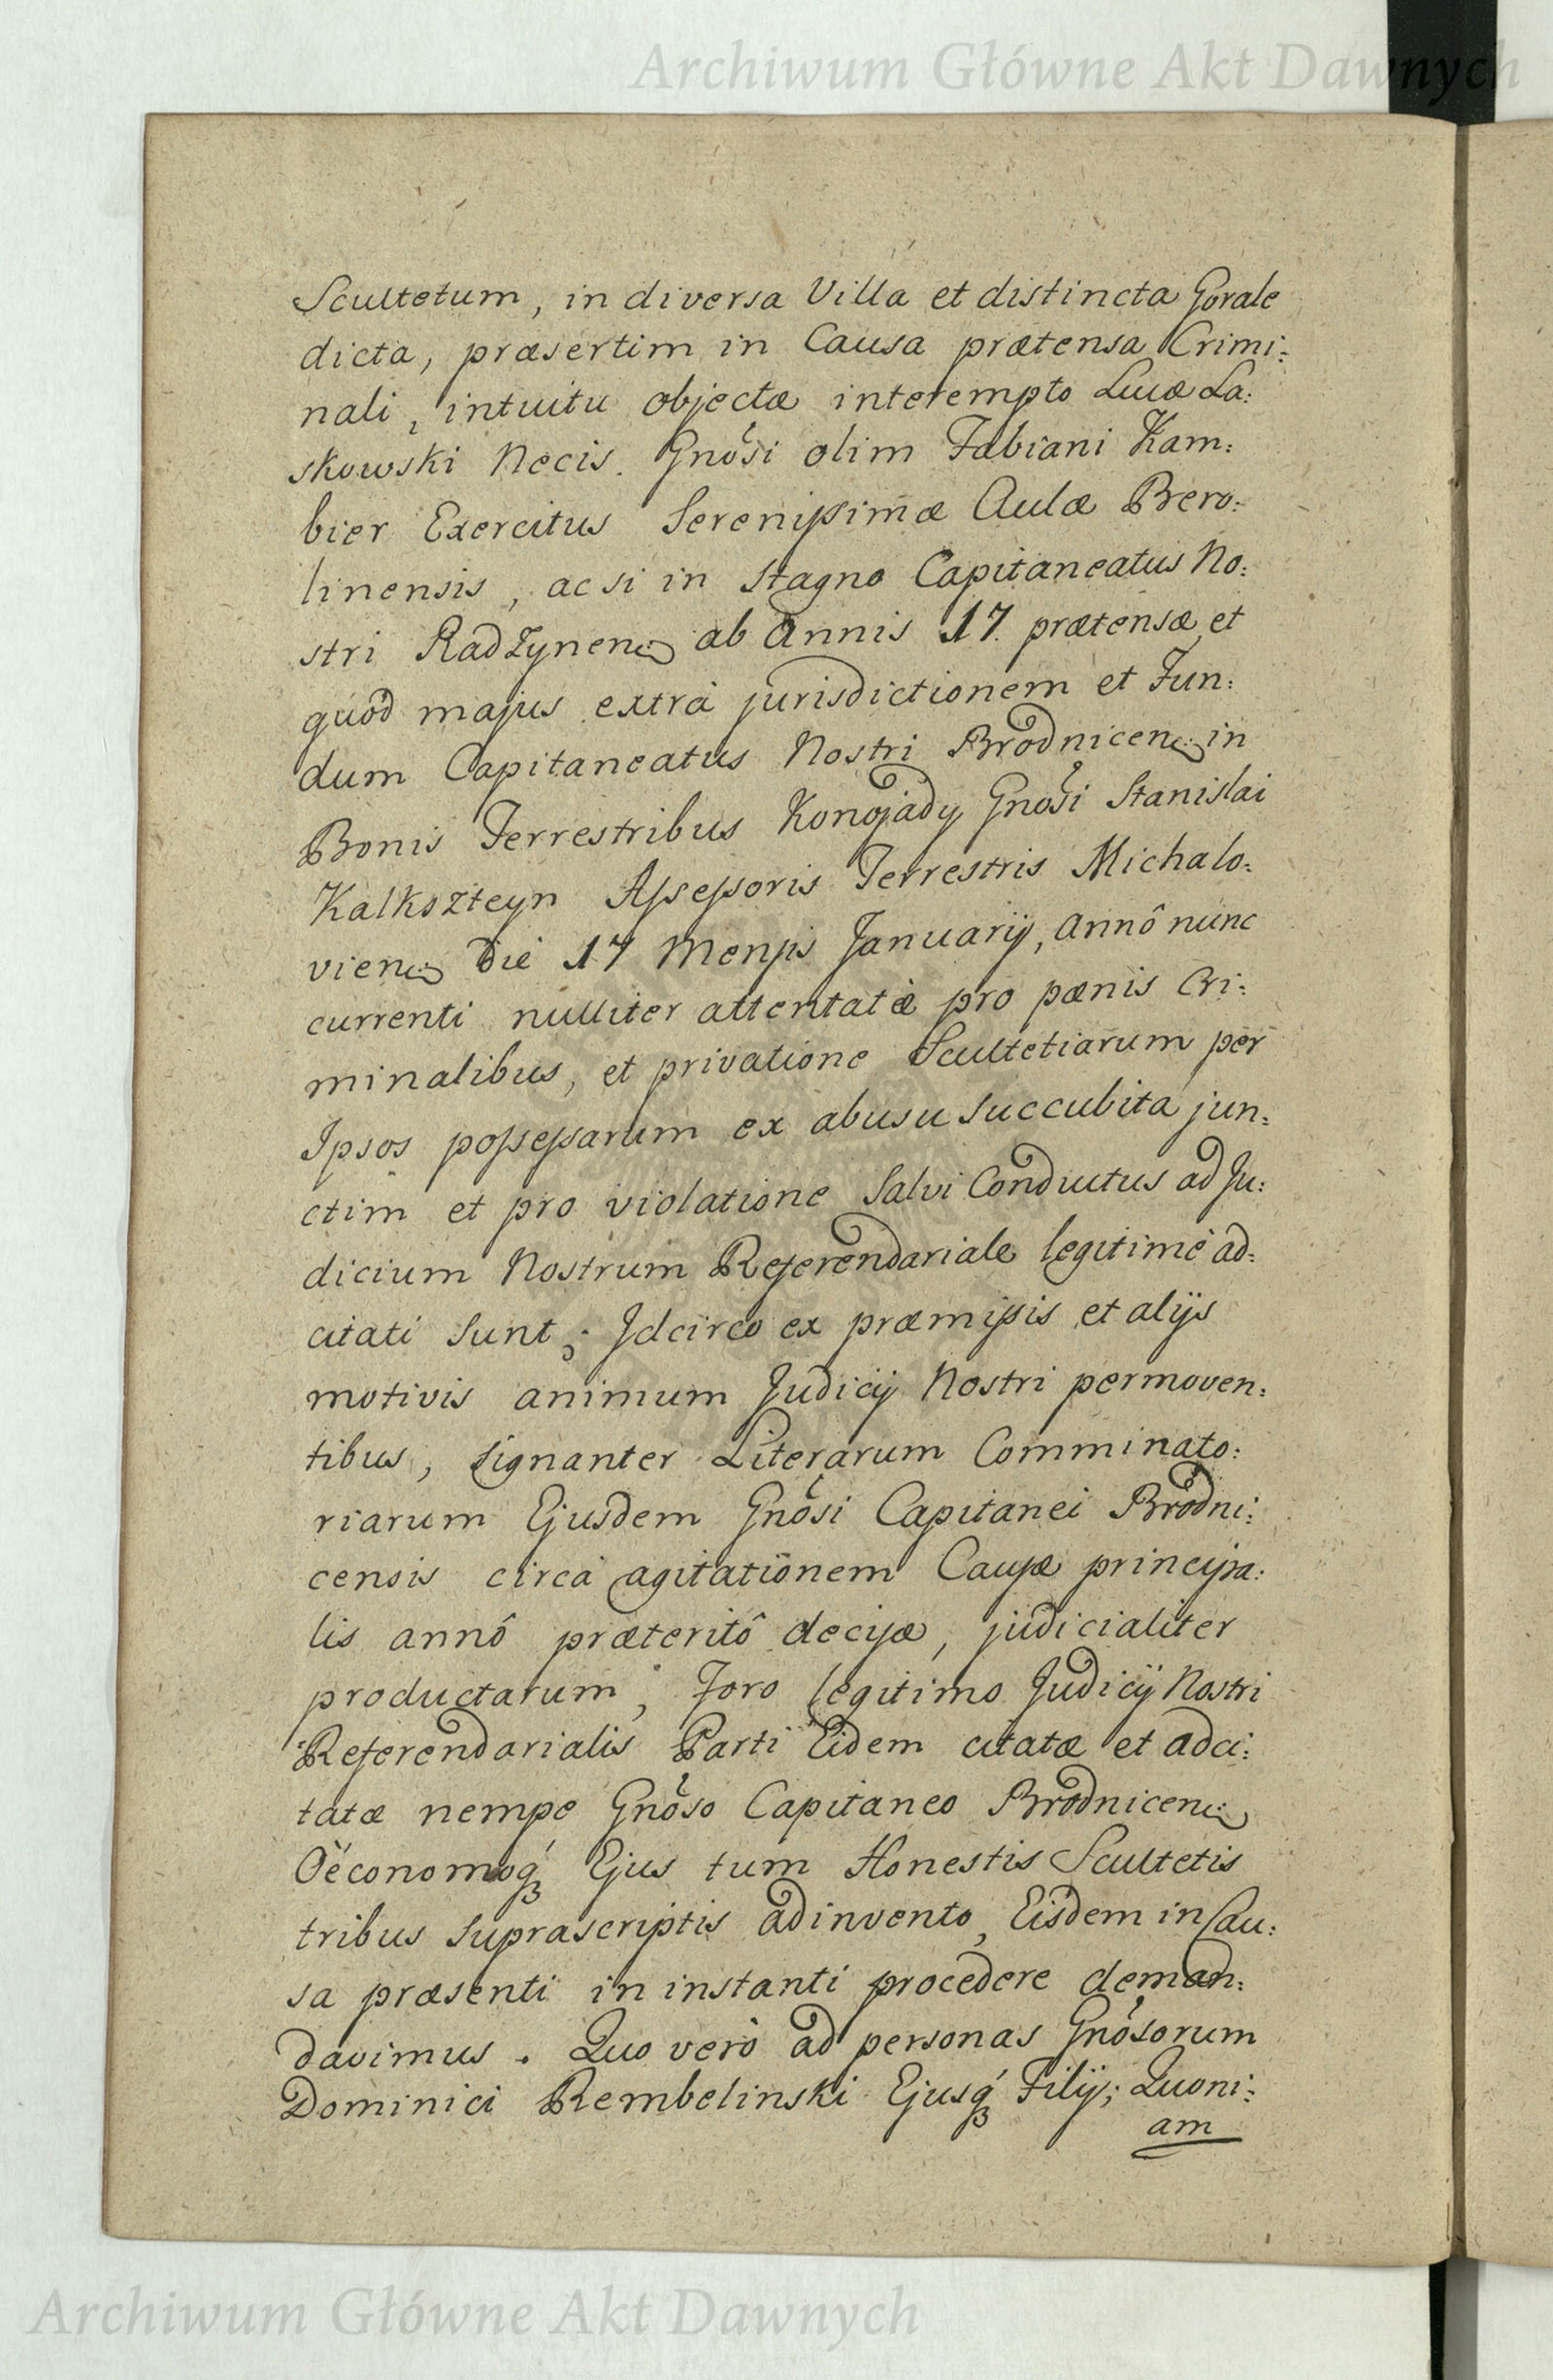 Archiwum Główne Akt Dawnych
Scultetum, in diversa Villa et distincta Gorale
dicta, præsertim in Causa prætensa Crimi:
nali, intuitu objectæ interempto Lucæ La:
skowski Necis. Gnosi olim Fabiani Kam:
bier Exercitus Serenissimæ Aulæ Bero:
linensis, ac si in stagno Capitaneatus No:
stri Radzynen: ab Annis 17. prætensæ et
quod majus extrà jurisdictionem et Fun:
dum Capitaneatus Nostri Brodnicen: in
Bonis Terrestribus Konojady Gnosi Stanislai
Kalkszteyn Assessoris Terrestris Michalo:
vien: Die 17 Mensis Januarij, Annô nunc
currenti nulliter attentatæ pro pænis Cri:
minalibus, et privatione Scultetiarum per
Ipsos possessarum ex abusu succubita jun:
ctim et pro violatione Salvi Conductus ad Ju:
dicium Nostrum Referendariale legitimè ad:
citati sunt; Idcirco ex præmissis et alijs
motivis animum Judicij Nostri permoven:
tibus, signanter Literarum Comminato:
riarum Ejusdem Gnosi Capitanei Brodni:
censis circa agitationem Causæ principa:
lis annô præteritô decisæ, judicialiter
productarum, Foro legitimo Judicij Nostri
Referendarialis Parti Eidem citatæ et adci:
tatæ nempe Gnoso Capitaneo Brodnicen:
Oëconomoq́ Ejus tum Honestis Scultetis
tribus suprascriptis adinvento, Eisdem in Cau:
sa præsenti in instanti procedere deman:
davimus. Quo verò ad personas Gnosorum
Dominici Rembelinski Ejusq́ Filij; Quoni:
am
Archiwum Główne Akt Dawnych